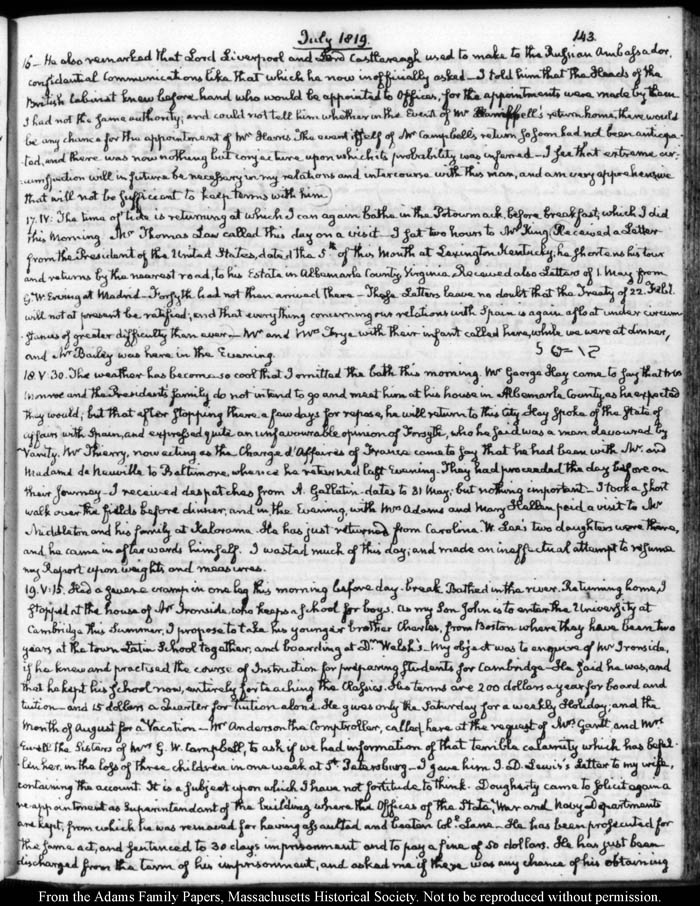 July 1819.
143.
16— He also remarked that Lord Liverpool and Lord Castlereagh used to make to the Russian Ambassador,
confidential Communications like that which he now inofficially asked— I told him that the Heads of the
British Cabinet knew before hand who would be appointed to Offices, for the appointments were made by them.
I had not the same authority; and could not tell him whether in the Event of Mr Campbell's return home, there would
be any chance for the appointment of Mr Harris. The event itself of Mr Campbell's return so soon had not been anticipa-
ted, and there was now nothing but conjecture upon which its probability was inferred— I see that extreme cir-
cumspection will in future be necessary in my relations and intercourse with this man, and am very apprehensive
that will not be sufficient to keep terms with him.
17. IV: The time of tide is returning at which I can again bathe in the Potowmack, before breakfast; which I did
this Morning. Mr Thomas Law called this day on a visit— I sat two hours to Mr King. Received a Letter
from the President of the United States, dated the 5th of this Month at Lexington Kentucky; he shortens his tour
and returns by the nearest road, to his Estate in Albemarle County, Virginia. Received also Letters of 1. May from
G. W. Erving at Madrid— Forsyth had not then arrived there— These Letters leave no doubt that the Treaty of 22. Feby.
will not at present be ratified; and that every thing concerning our relations with Spain is again afloat under circum-
stances of greater difficulty than ever— Mr and Mrs Frye with their infant called here, while we were at dinner,
and Mr Bailey was here in the Evening.
18. V. 30. The weather has become so cool that I omitted the bath this morning. Mr George Hay came to say that Mrs
Monroe and the President's family do not intend to go and meet him at his house in Albemarle County, as he expected
they would; but that after stopping there a few days for repose, he will return to this City. Hay spoke of the State of
affairs with Spain, and expressed quite an unfavourable opinion of Forsyth, who he said was a man devoured by
Vanity. Mr Thierry, now acting as the Chargé d'Affaires of France came to say that he had been with Mr. and
Madame de Neuville to Baltimore, whence he returned last Evening. They had proceeded the day before on
their Journey— I received despatches from A. Gallatin— dates to 31 May: but nothing important— I took a short
walk over the fields before dinner, and in the Evening, with Mrs Adams and Mary Hellen paid a visit to Mr
Middleton and his family at Kalorama. He has just returned from Carolina. W. Lee's two daughters were there,
and he came in afterwards himself. I wasted much of this day; and made an ineffectual attempt to resume
my Report upon weights and measures.
19. V: 15. Had a severe cramp in one leg this morning before day-break. Bathed in the river. Returning home, I
stopped at the house of Mr Ironside, who keeps a school for boys. As my Son John is to enter the University at
Cambridge this Summer, I propose to take his younger brother Charles, from Boston where they have been two
years at the town Latin School together, and boarding at Dr Welsh's. My object was to enquire of Mr Ironside,
if he knew and practised the course of Instruction for preparing Students for Cambridge— He said he was, and
that he kept his School now, entirely for teaching the Classics. His terms are 200 dollars a year for board and
tuition— and 15 dollars a Quarter for tuition alone. He gives only the Saturday for a weekly Holiday; and the
Month of August for a Vacation— Mr Anderson the Comptroller, called here at the request of Mrs Gantt and Mrs
Ewell the Sisters of Mrs G. W. Campbell, to ask if we had information of that terrible calamity which has befal-
len her, in the loss of three children in one week at St. Petersburg— I gave him J. D. Lewis's Letter to my wife,
containing the account. It is a subject upon which I have not fortitude to think. Dougherty came to solicit again a
re-appointment as Superintendant of the building where the Offices of the State, War and Navy Departments
are kept, from which he was removed for having assaulted and beaten Coll. Lane— He has been prosecuted for
the same act, and sentenced to 30 days imprisonment and to pay a fine of 50 dollars. He has just been
discharged from the term of his imprisonment, and asked me if there was any chance of his obtaining
From the Adams Family Papers, Massachusetts Historical Society. Not to be reproduced without permission.